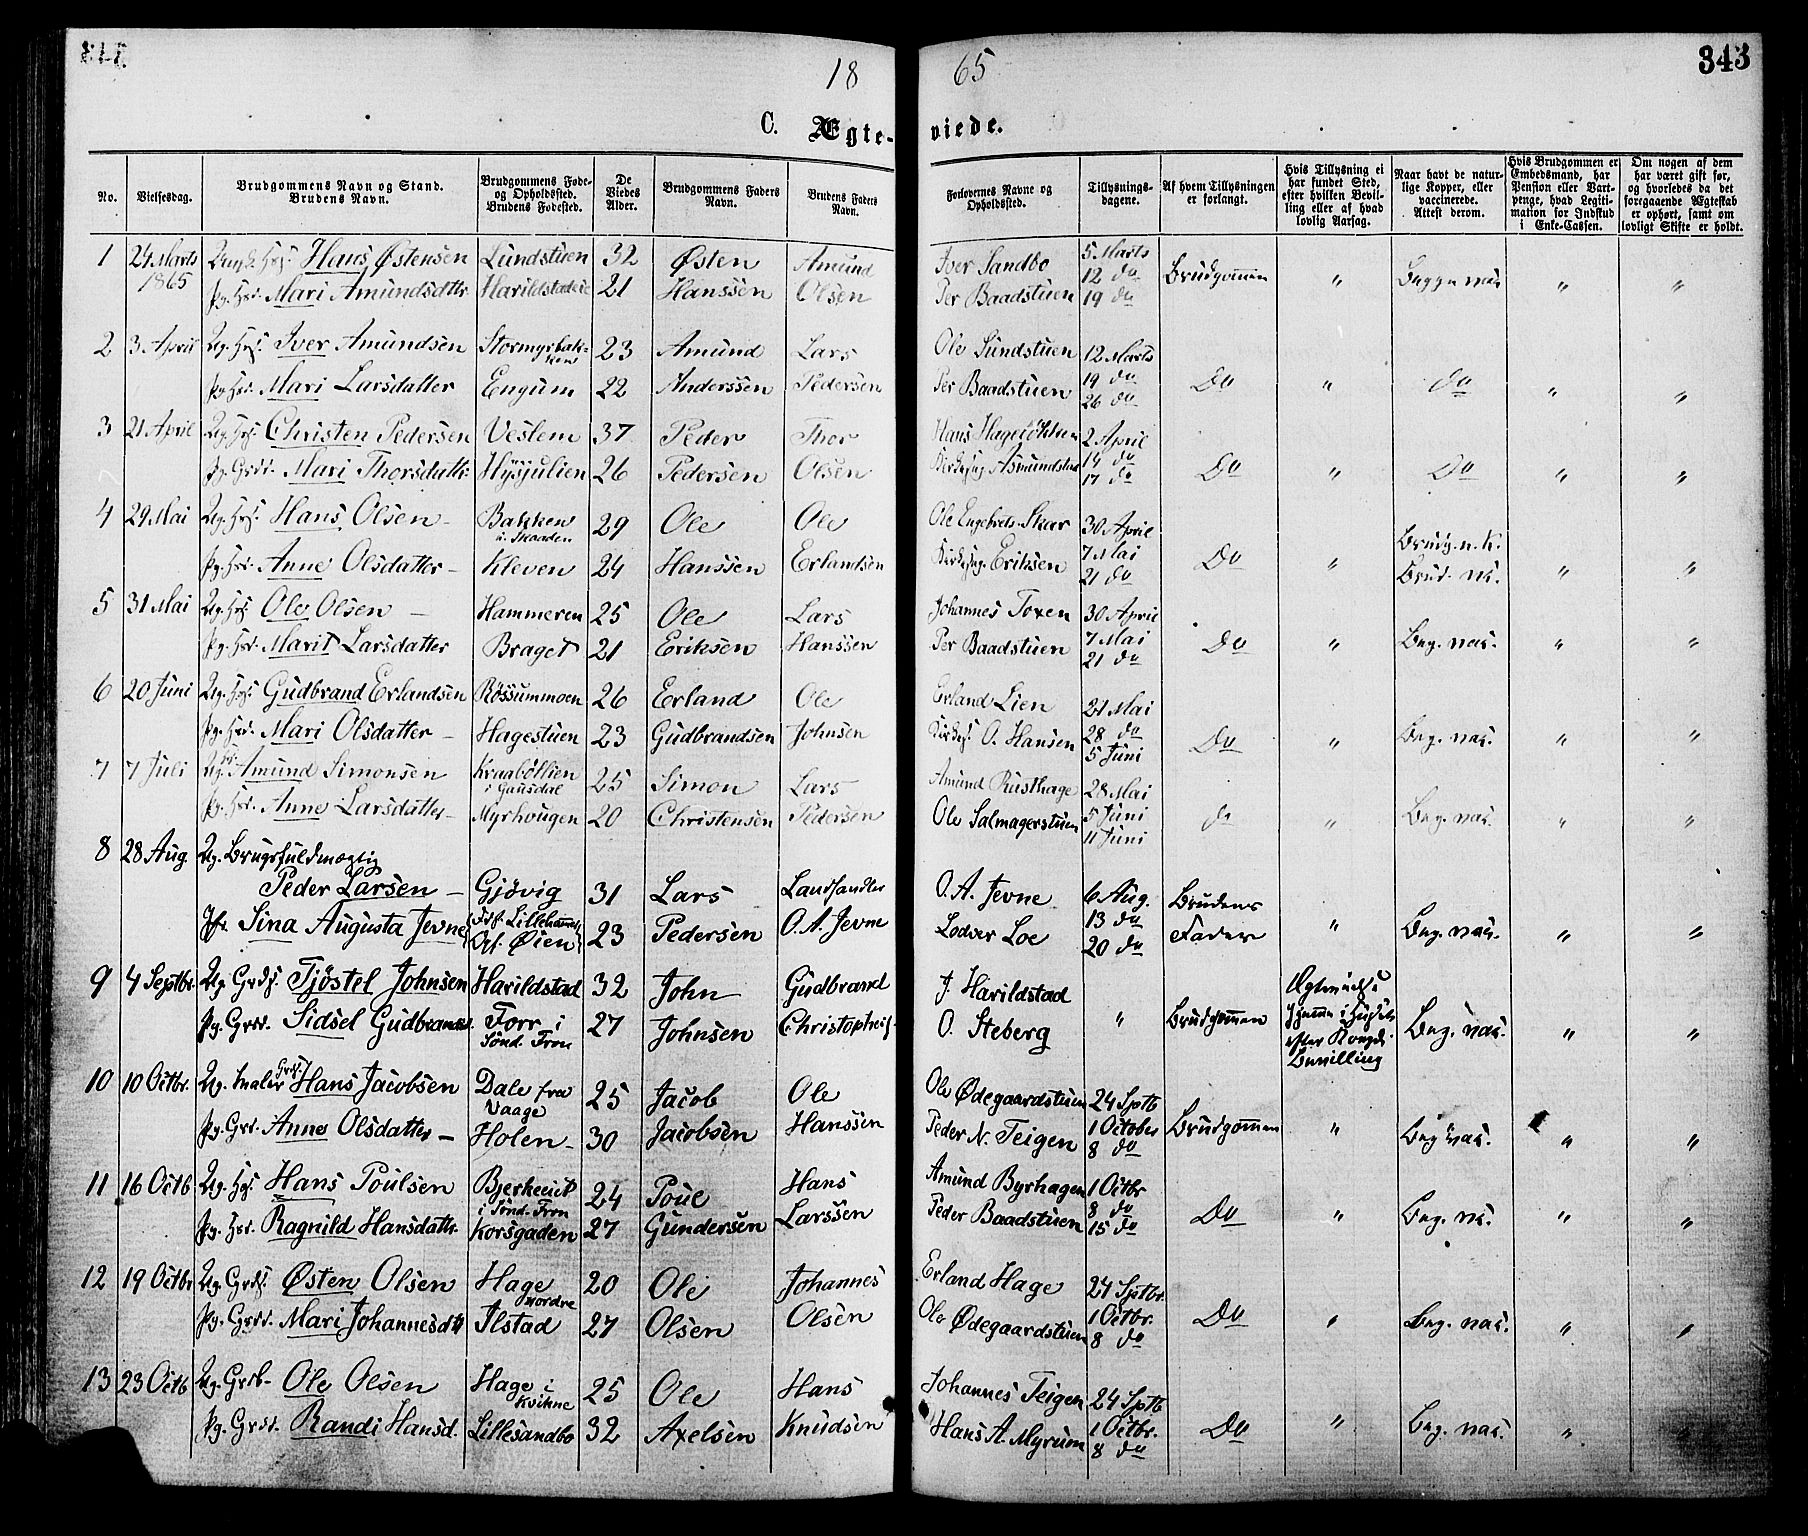 18 65 343
C. Ægte- viede.
No. Vielsesdag. Brudgommens Navn og Stand. Brudens Navn. Brudgommens Føde- og Opholdssted. Brudens Fødested. De Viedes Alder. Brudgommens Faders Navn. Brudens Faders Navn. Forlovernes Navne og Opholdssted. Tillysnings- dagene. Af hvem Tillysningen er forlangt. Hvis Tillysning ei har fundet Sted, efter hvilken Bevil- ling eller af hvad lovlig Aarsag. Naar havt de natur- lige Kopper, eller vaccinerede. Attest derom. Hvis Brudgommen er Embedsmand, har Pension eller Vart- penge, hvad Legiti- mation for Indskud i Enke-Cassen. Om nogen af dem har været gift før, og hvorledes da det foregaaende Ægteskab er ophørt, samt om lovligt Skifte er holdt.
1 24 Marts 1865 Hans Østensen Lundstuen 32 Østen Amund Iver Sandbo 5 Marts
Mari Amundsdttr. 21 Hanssen Olsen Per Baadstuen 12 do 19 do Brudgommen " " "
2 3 April Ug. Iver Amundsen Stormyrbakken 23 Amund Lars Ole Sundstuen 12 Marts
Pg. Mari Larsdatter Engum 22 Anderssen Pedersen Per Baadstuen 19 do 26 do Do " do " "
3 21 April Ug. Christen Pedersen Veslem 37 Peder Thor Hans 2 April
Pg. Mari Thorsdattr. Hysjulien 26 Pedersen Olsen Asmundstad 14 do 17 do Do " Do " "
4 29 Mai Ug. Hans Olsen Bakken i Skaaden 29 Ole Ole Ole Engebrets. Skar 30 April
Pg. Anne Olsdatter Kleven 24 Hanssen Erlandsen Eriksen 7 Mai 21 do Do " " "
5 31 Mai Ug. Ole Olsen Hammeren 25 Ole Lars Johannes Toxen 30 April
Pg. Marit Larsdatter Braget 21 Eriksen Hanssen Per Baadstuen 7 Mai 21 do Do " Beg. vac. " "
6 20 Juni Ug. Gudbrand Erlandsen Røssummoen 26 Erland Ole Erland Lien 21 Mai
Pg. Mari Olsdatter Hagestuen 23 Gudbrandsen Johnsen O. Hansen 28 do 5 Juni Do " Beg. vac. " "
7 7 Juli Ug. Amund Simonsen Kraabøllien i Gausdal 25 Simon Lars Amund Rusthage 28 Mai
Pg. Anne Larsdatter Myrhougen 20 Christensen Pedersen Ole Salmagerstuen 5 Juni 11 Juni do " Beg. vac. " "
8 28 Aug. Ug. Brugsfuldmægtig
Peder Larsen Gjøvig 31 Lars Landhandler O. A. Jevne 6 Aug. Brudens
Jfr. Sina Augusta Jevne Lillehammer Øien 23 Pedersen O. A. Jevne Lodver Loe 13 do 20 do Fader " Beg. vac. " "
9 4 Septbr. Ug. Grds. Tjøstel Johnsen Harildstad 32 John Gudbrand J. Harildstad
Pg. Grdr. Sidsel Gudbrandsd. Forr i Sønd. Fron 27 Johnsen O. Steberg " Brudgommen efter Kongl. Bevilling Beg. vac. " "
10 10 Octbr. Ug. Hans Jacobsen Dale fra Vaage 25 Jacob Ole Ole Ødegaardstuen 24 Sptb
Pg. Grd. Anne Olsdatter Holen 30 Jacobsen Hanssen Peder N. Teigen 1 October 8 do Brudgommen " Beg vac. " "
11 16 Octb Ug. Hans Poulsen i Sønd. Fron 24 Poul Hans Amund Byrhagen 1 Octbr
Pg. Ragnild Hansdattr. Korsgaden 27 Gundersen Larssen Peder Baadstuen 8 do 15 do Do " Beg. vc. " "
12 19 Octbr Ug. Grds. Østen Olsen Hage nordre 20 Ole Johannes Erland Hage 24 Sptbr.
Pg. Grdr. Mari Johannesdtt Ilstad 27 Olsen Olsen Ole Ødegaardstuen 1 Octbr. 8 do Do " Beg. vac. " "
13 23 Octb Ug. Ole Olsen Hage i Kvikne 25 Ole Hans Johannes Teigen 24 Sptb
Pg. Grdr. Randi Hansd. Lillesandbo 32 Axelsen Knudsen Hans A. Myrum 1 Octbr. 8 do Do " Beg. vac. " "